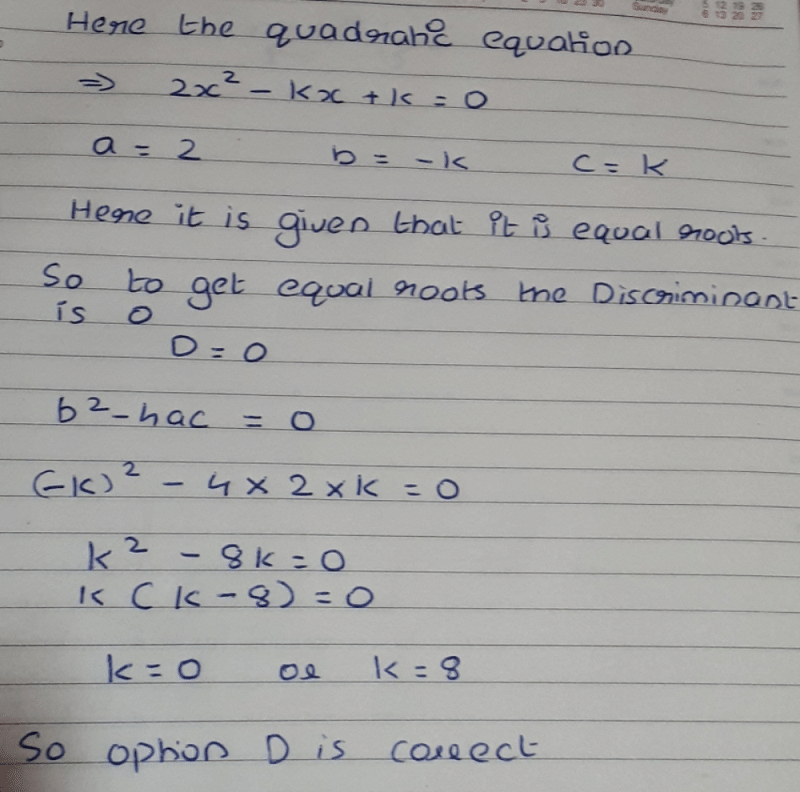 Sunday 5 12 19 26
6 13 20 27
Here the quadratic equation
⇒ 2x² - kx + k = 0
a = 2 b = -k c = k
Here it is given that it is equal roots.
So to get equal roots the Discriminant
is 0
D = 0
b² - 4ac = 0
(-k)² - 4 × 2 × k = 0
k² - 8k = 0
k (k - 8) = 0
k = 0 or k = 8
So option D is correct